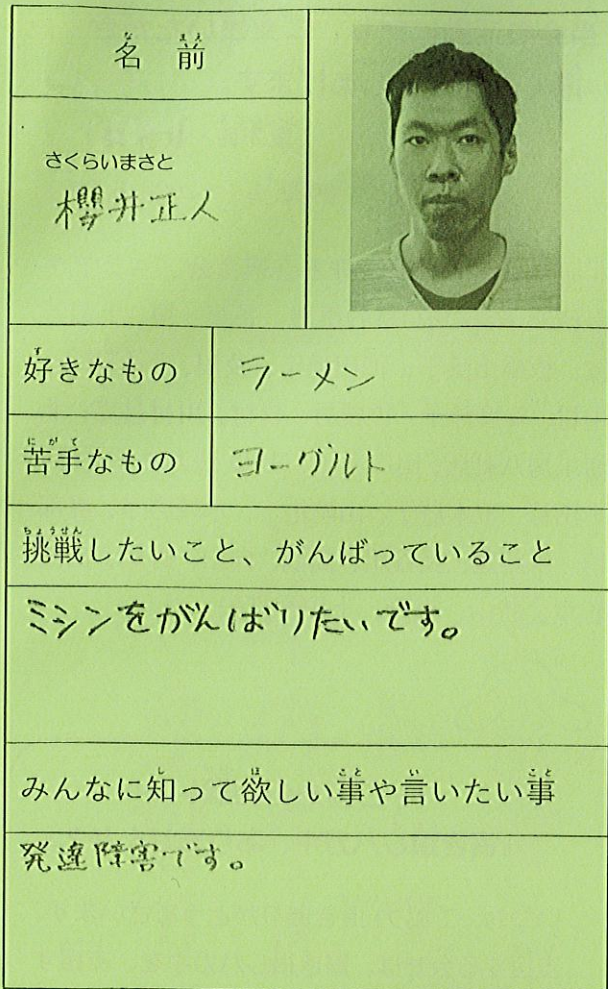 名前
さくらいまさと
櫻井正人
好きなもの
ラーメン
苦手なもの
ヨーグルト
挑戦したいこと、がんばっていること
ミシンをがんばりたいです。
みんなに知って欲しい事や言いたい事
発達障害です。